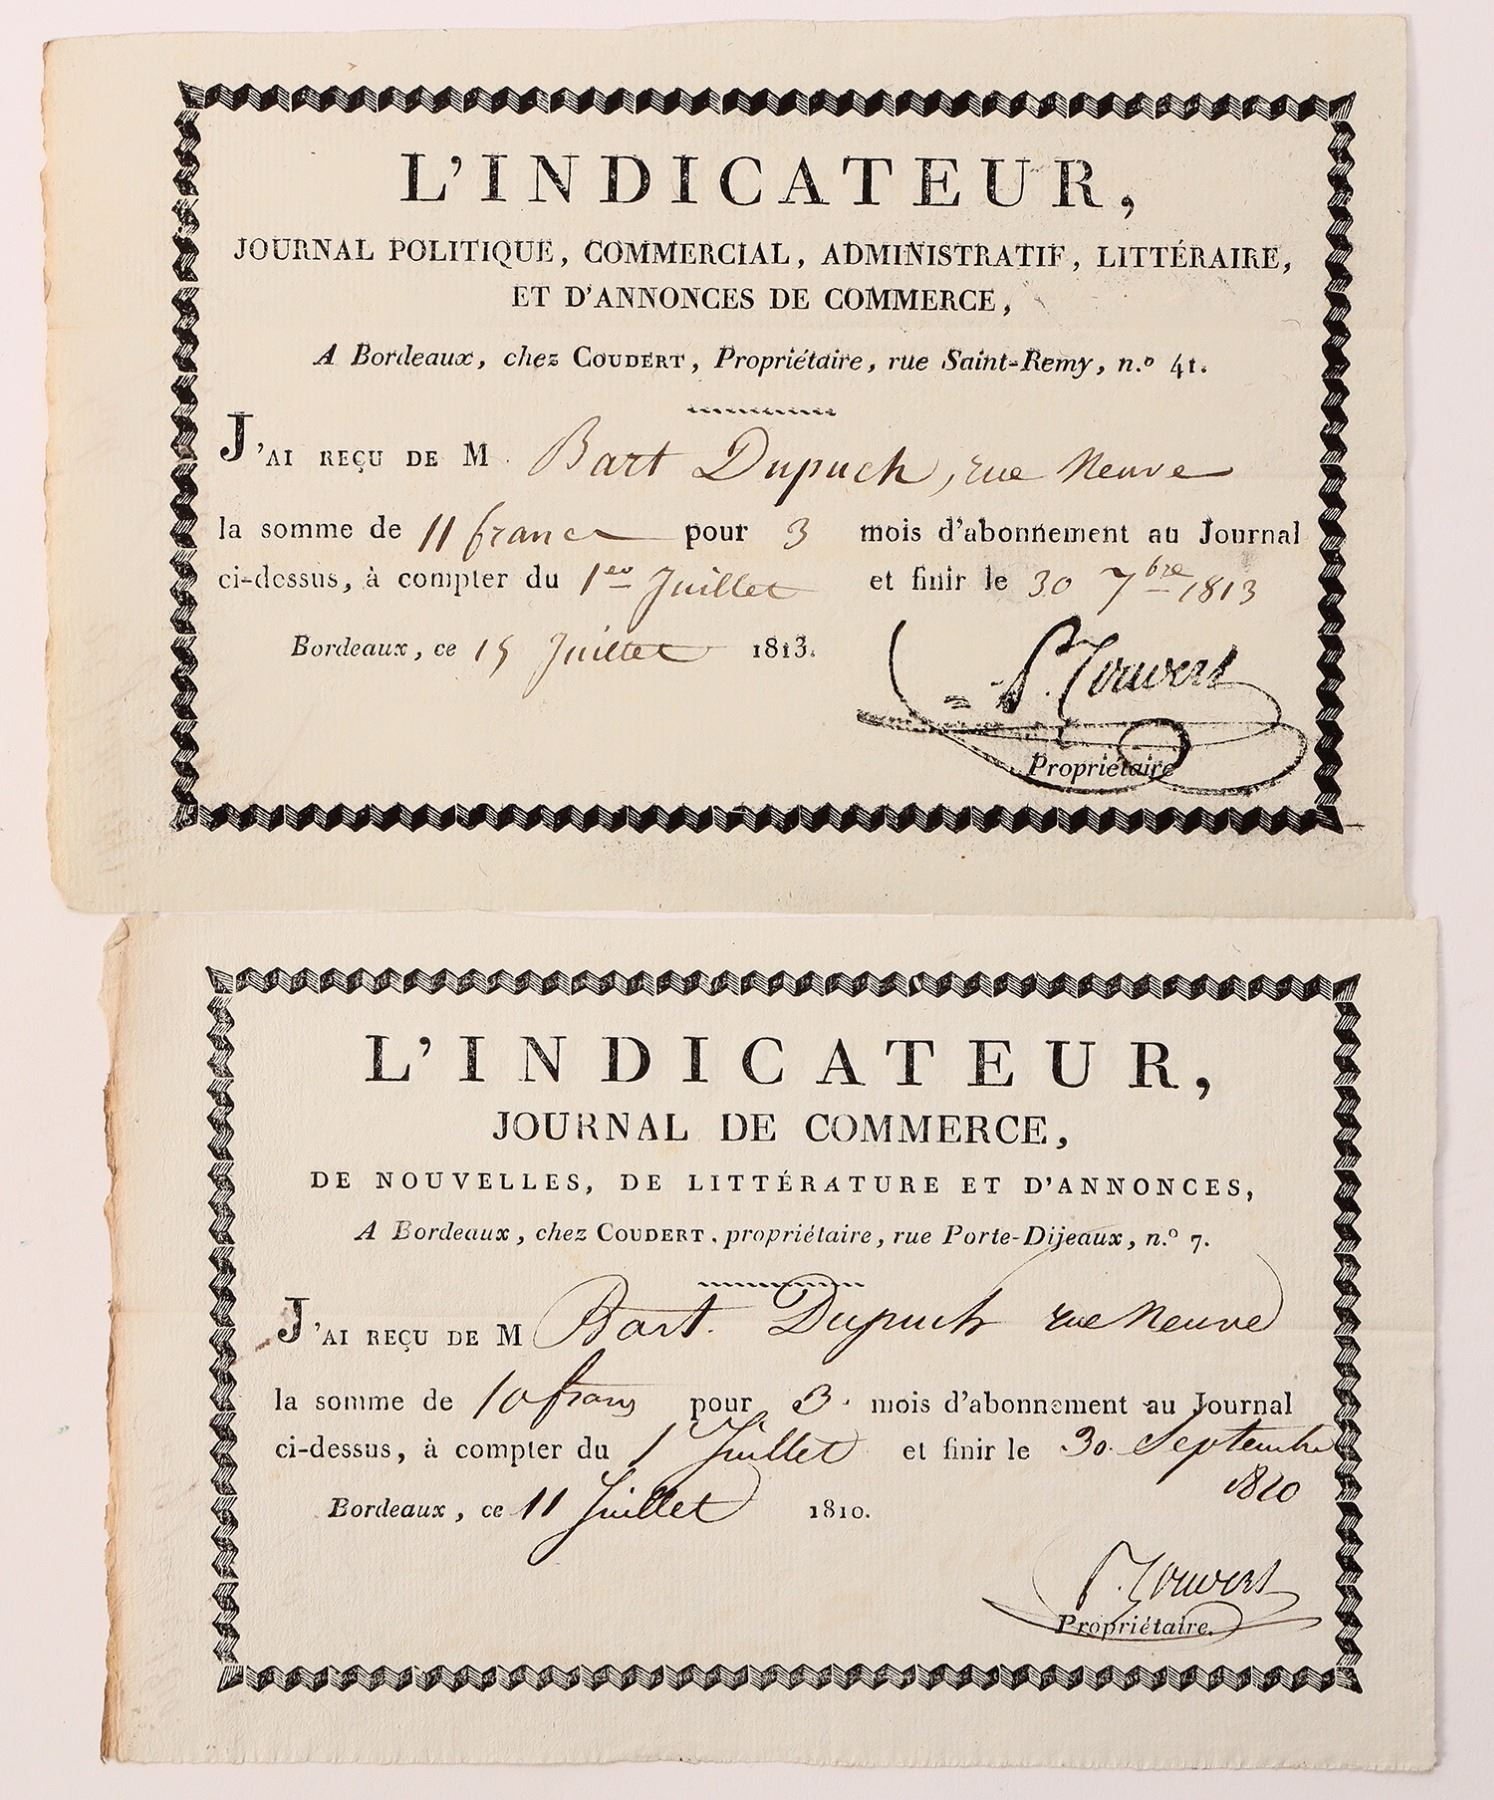 L'INDICATEUR,
JOURNAL POLITIQUE, COMMERCIAL, ADMINISTRATIF, LITTÉRAIRE,
ET D'ANNONCES DE COMMERCE,
A Bordeaux, chez COUDERT, Propriétaire, rue Saint-Remy, n.º 41.
J'AI REÇU DE M. Bart Dupuch, rue Neuve
la somme de 11 francs pour 3 mois d'abonnement au Journal
ci-dessus, à compter du 1er Juillet et finir le 30 7bre 1813
Bordeaux, ce 15 Juillet 1813.
Propriétaire
L'INDICATEUR,
JOURNAL DE COMMERCE,
DE NOUVELLES, DE LITTÉRATURE ET D'ANNONCES,
A Bordeaux, chez COUDERT, propriétaire, rue Porte-Dijeaux, n.º 7.
J'AI REÇU DE M Bart. Dupuch rue Neuve
la somme de 10 francs pour 3. mois d'abonnement au Journal
ci-dessus, à compter du 1 Juillet et finir le 30. Septembre
1810
Bordeaux, ce 11 Juillet 1810.
Propriétaire.